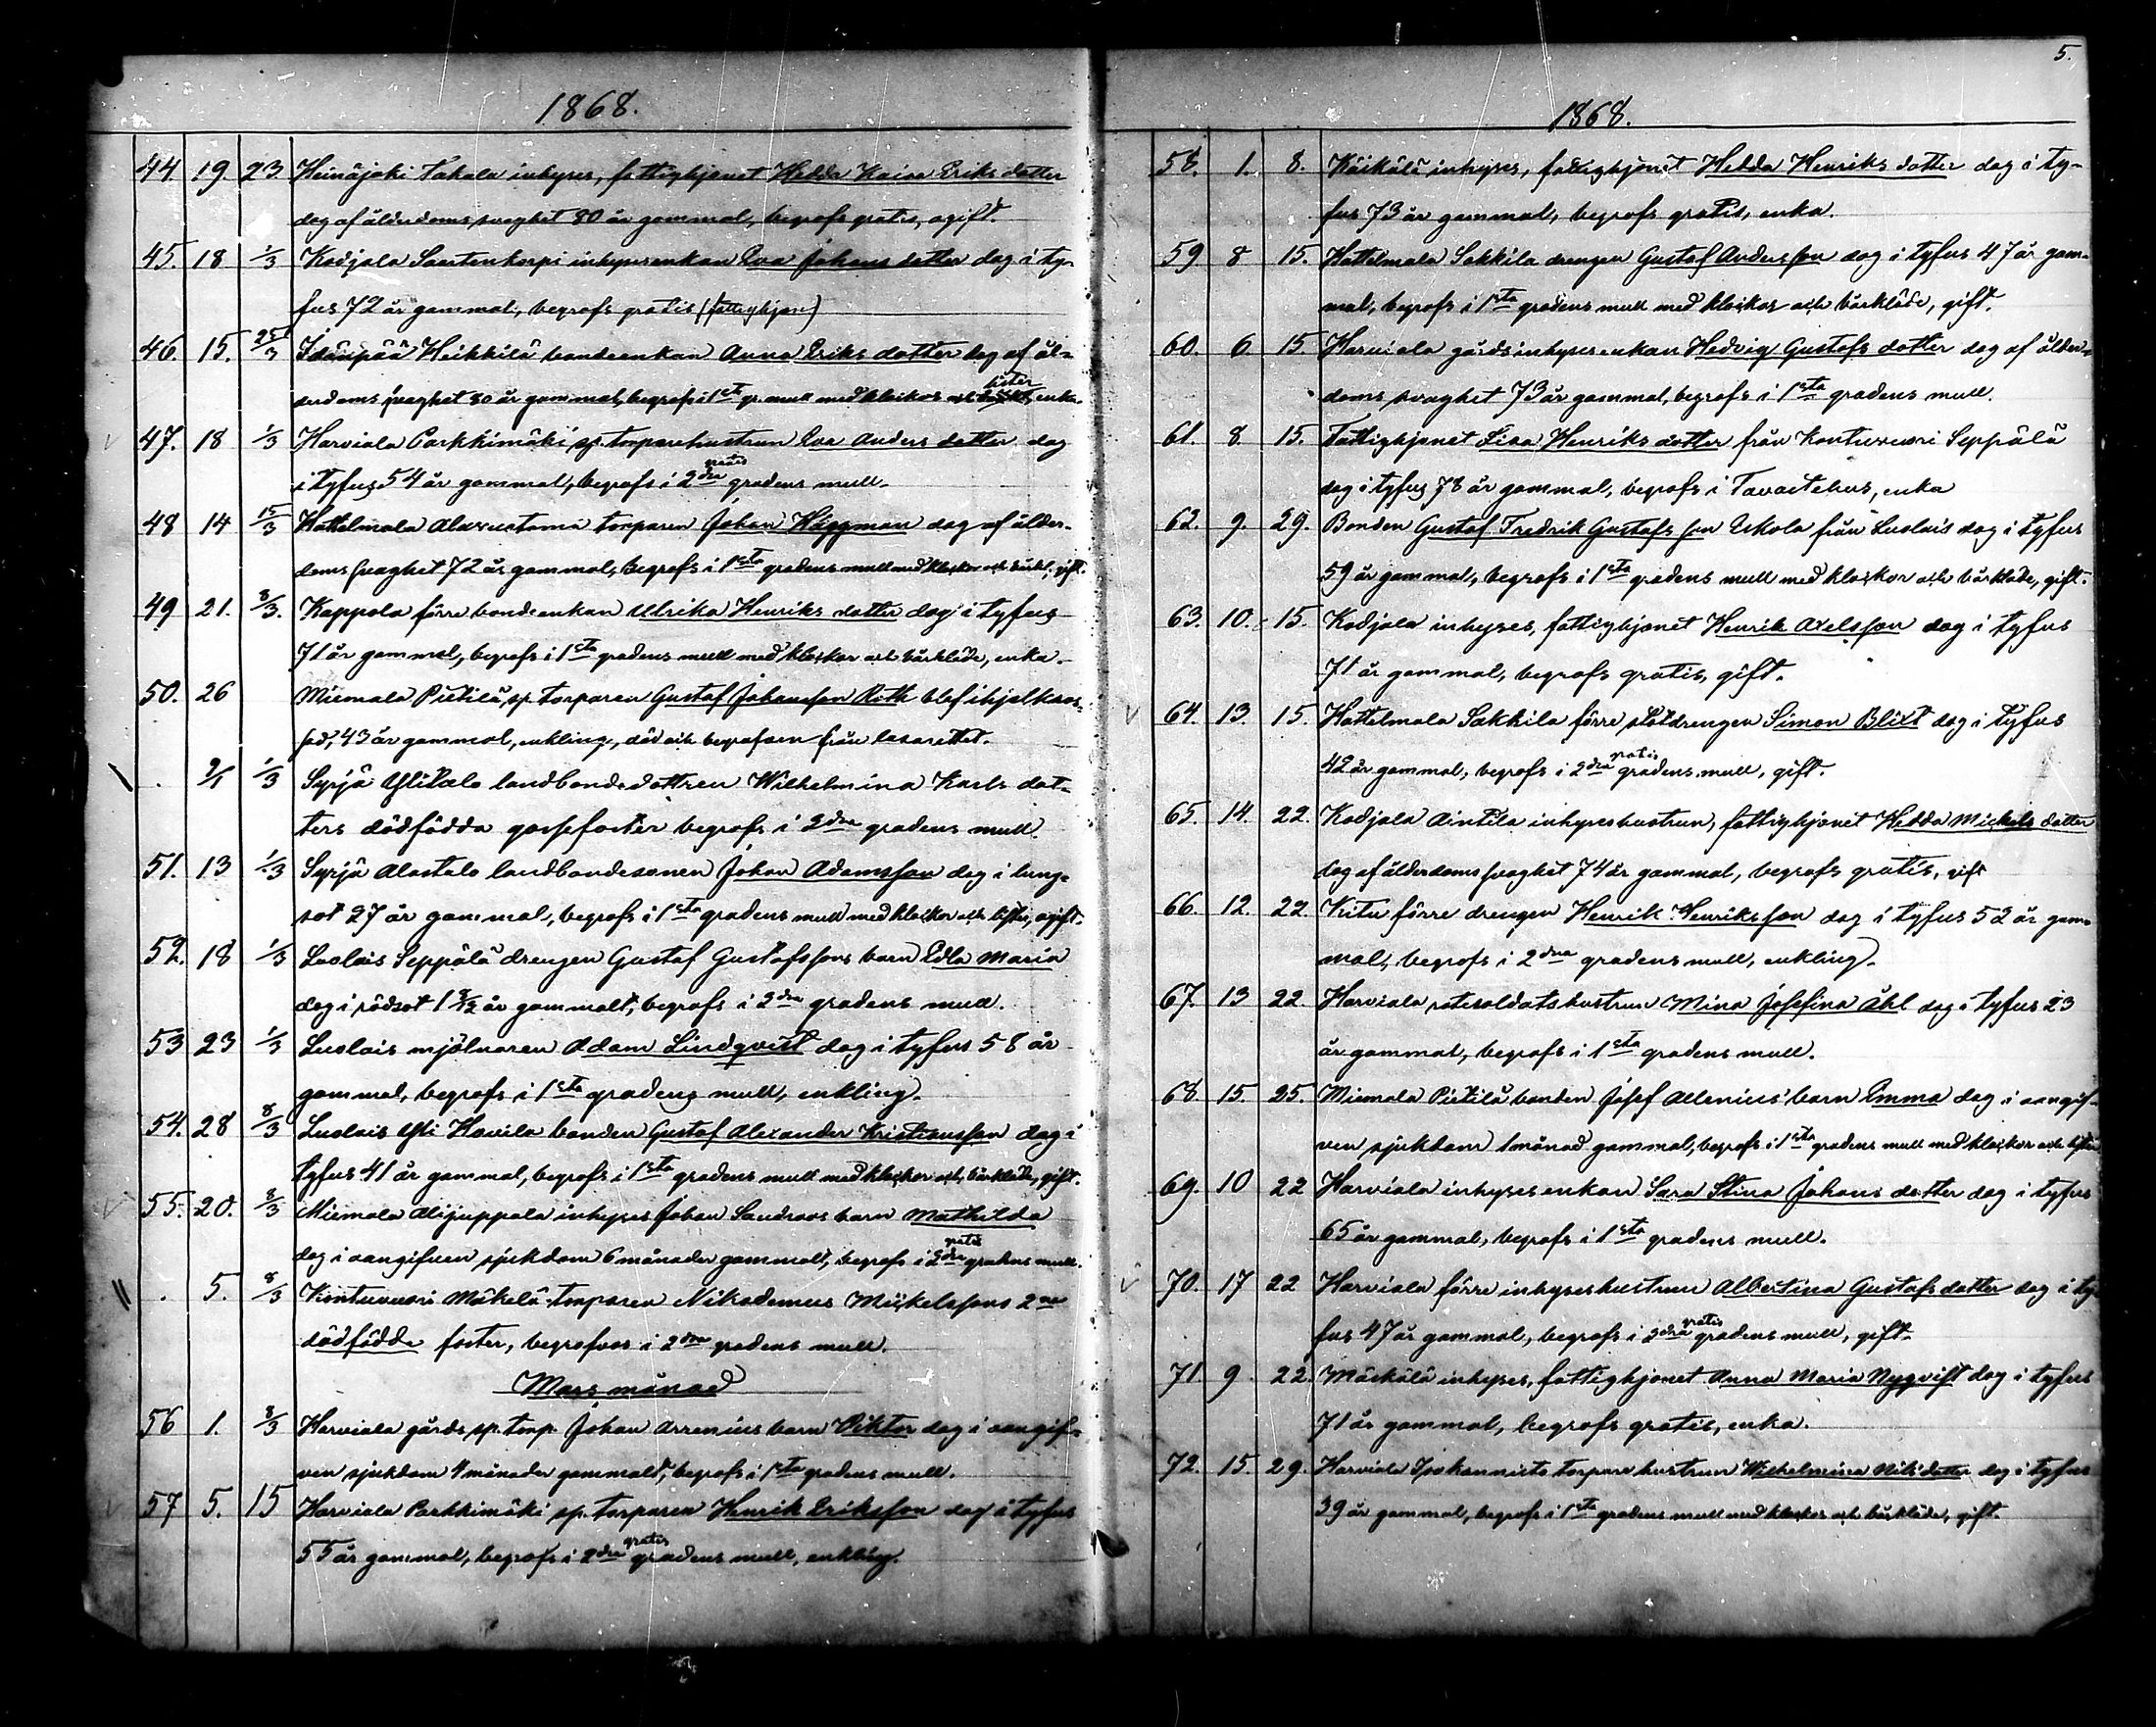 5.
1868.
44. 19. 23. Heinäjoki Takala inhyses, fattighjonet Hedda Kaisa Eriks dotter
dog af ålderdoms svaghet 80 år gammal, begrofs gratis, ogift.
45. 18 1/3 Kodjala inhysesenkan Eva Johans dotter dog i ty-
fus 72 år gammal, begrofs gratis (fattighjon)
46. 15. 25/3 Idänpää Heikkilä bondeenkan Anna Eriks dotter dog af ål-
derdoms svaghet 80 år gammal, begrofs i 1sta gr. mull med klockor och lister, enka.
47. 18 1/3 Harviala Parkkimäki sp. torparehustrun Eva Anders dotter dog
i tyfus 54 år gammal, begrofs i 2dra gratis gradens mull.
48 14 15/3 Hattelmala torparen Johan Häggman dog af ålder-
doms svaghet 72 år gammal, begrofs i 1sta gradens mull med klockor och bårkl., gift.
49 21. 8/3. Kappola förre bondeenkan Ulrika Henriks dotter dog i tyfus
71 år gammal, begrofs i 1sta gradens mull med klockor och bårkläde, enka.
50. 26 Miemala Pietilä sp. torparen Gustaf Johansson Roth blef ihjelkros-
sad, 43 år gammal, enkling, död och begrafven från lasarettet.
2/1 1/3 Syrjä Ylitalo landbondedottren Wilhelmina Karls dot-
ters dödfödda gossefoster begrofs i 2dra gradens mull.
51. 13 1/3 Syrjä Alastalo landbondesonen Johan Adamsson dog i lung-
sot 27 år gammal, begrofs i 1sta gradens mull med klockor och lister, ogift.
52. 18 1/3 Luolais Seppälä drengen Gustaf Gustafssons barn Edla Maria
dog i rödsot 1 år gammalt, begrofs i 2dra gradens mull.
53 23 1/3 Luolais mjölnaren Adam Lindqvist dog i tyfus 58 år
gammal, begrofs i 1sta gradens mull, enkling.
54. 28 8/3 Luolais Yli Hovila bonden Gustaf Alexander Kristiansson dog i
tyfus 41 år gammal, begrofs i 1sta gradens mull med klockor och bårkläde, gift.
55. 20. 8/3 Miemala Alijuppala inhyses Johan Sandroos barn Mathilda
dog i oangifven sjukdom 6 månader gammalt, begrofs i 2dra gratis gradens mull.
5. 8/3 Kontuvuori Mäkelä torparen Nikodemus Mickelssons 2ne
dödfödde foster, begrofvos i 2dra gradens mull.
Mars månad
56 1. 8/3 Harviala gårds sp. torp. Johan Arrenius barn Viktor dog i oangif-
ven sjukdom 4 månader gammalt, begrofs i 1sta gradens mull.
57 5. 15 Harviala Parkkimäki sp. torparen Henrik Eriksson dog i tyfus
55 år gammal, begrofs i 2dra gratis gradens mull, enkling.
1868.
58. 1. 8. Käikälä inhyses, fattighjonet Hedda Henriks dotter dog i ty-
fus 73 år gammal, begrofs gratis, enka.
59 8 15. Hattelmala Sakkila drengen Gustaf Andersson dog i tyfus 47 år gam-
mal, begrofs i 1sta gradens mull med klockor och bårkläde, gift.
60. 6 15. Harviala gårds inhysesenkan Hedvig Gustafs dotter dog af ålder-
doms svaghet 73 år gammal, begrofs i 1sta gradens mull.
61. 8 15. Fattighjonet Lisa Henriks dotter från Kontuvuori Seppälä
dog i tyfus 78 år gammal, begrofs i Tavastehus, enka
62. 9. 29. Bonden Gustaf Fredrik Gustafs son Eskola från Luolais dog i tyfus
59 år gammal, begrofs i 1sta gradens mull med klockor och bårkläde, gift.
63. 10. 15. Kodjala inhyses, fattighjonet Henrik Axelsson dog i tyfus
71 år gammal, begrofs gratis, gift.
64. 13. 15. Hattelmala Sakkila förre statdrengen Simon Blixt dog i tyfus
42 år gammal, begrofs i 2dra gratis gradens mull, gift.
65. 14. 22. Kodjala Anttila inhyseshustrun, fattighjonet Hedda Mickels dotter
dog af ålderdoms svaghet 74 år gammal, begrofs gratis, gift
66. 12. 22. Kitu förre drengen Henrik Henriksson dog i tyfus 52 år gam-
mal, begrofs i 2dra gradens mull, enkling.
67. 13 22. Harviala rotesoldatshustrun Mina Josefina Åhl dog i tyfus 23
år gammal, begrofs i 1sta gradens mull.
68 15. 25. Miemala Pietilä bonden Josef Allenius' barn Emma dog i oangif-
ven sjukdom 1 månad gammal, begrofs i 1sta gradens mull med klockor och lister
69. 10 22 Harviala inhysesenkan Sara Stina Johans dotter dog i tyfus
65 år gammal, begrofs i 1sta gradens mull.
70. 17 22 Harviala förre inhyseshustrun Albertina Gustafs dotter dog i ty-
fus 47 år gammal, begrofs i 2dra gratis gradens mull, gift.
71 9 22. Mäskälä inhyses, fattighjonet Anna Maria Nyqvist dog i tyfus
71 år gammal, begrofs gratis, enka.
72. 15. 29. Harviala torpare hustrun Wilhelmina Nilsdotter dog i tyfus
39 år gammal, begrofs i 1sta gradens mull med klockor och bårkläde, gift.